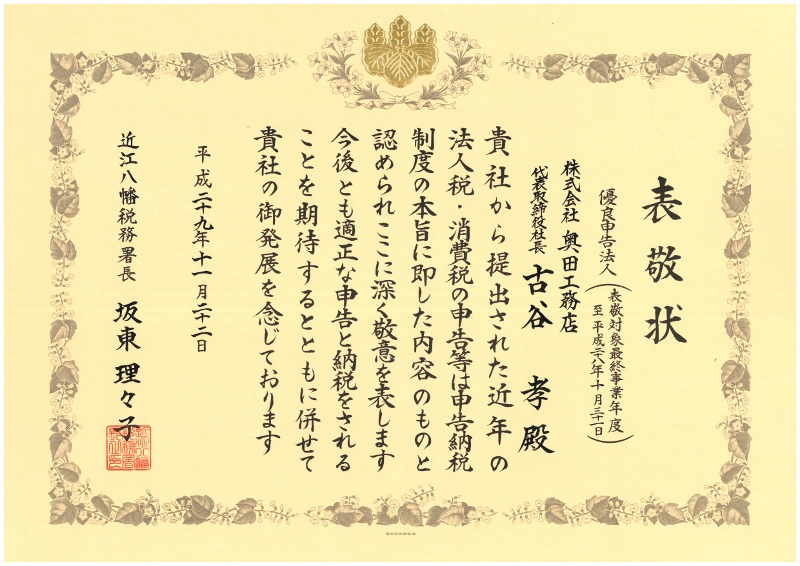 表敬状
優良申告法人
(表敬対象最終事業年度
至平成二十八年十月三十一日)
株式会社 奥田工務店
代表取締役社長 古谷 孝 殿
貴社から提出された近年の
法人税・消費税の申告等は申告納税
制度の本旨に即した内容のものと
認められここに深く敬意を表します
今後とも適正な申告と納税をされる
ことを期待するとともに併せて
貴社の御発展を念じております
平成二十九年十一月二十二日
近江八幡税務署長 坂東 理々子